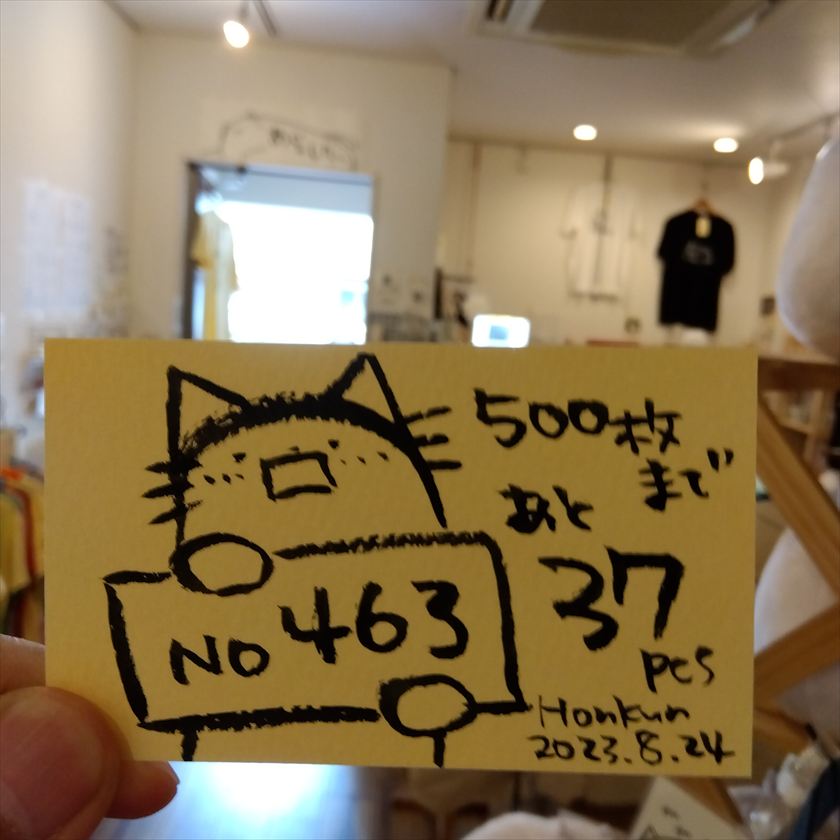 500枚
まで
あと
37
pcs
NO 463
Honkun
2023.8.24